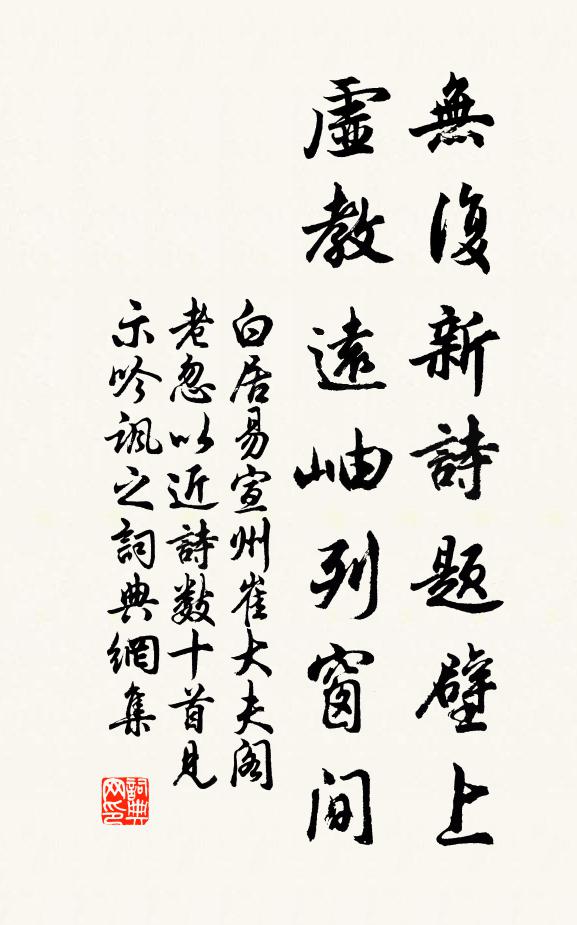 無復新詩題壁上
虛教遠岫列窗間
白居易宣州崔大夫閣
老忽以近詩數十首見
示吟諷之詞典網集
詞典
网印